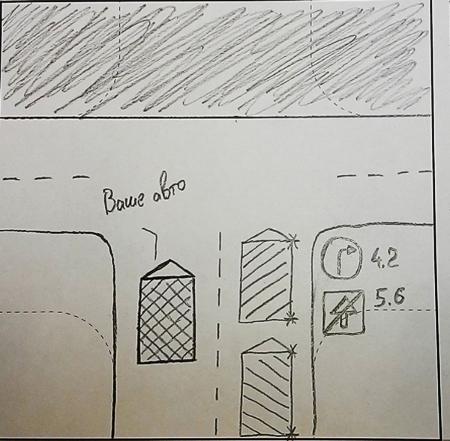 Ваше авто
4.2
5.6